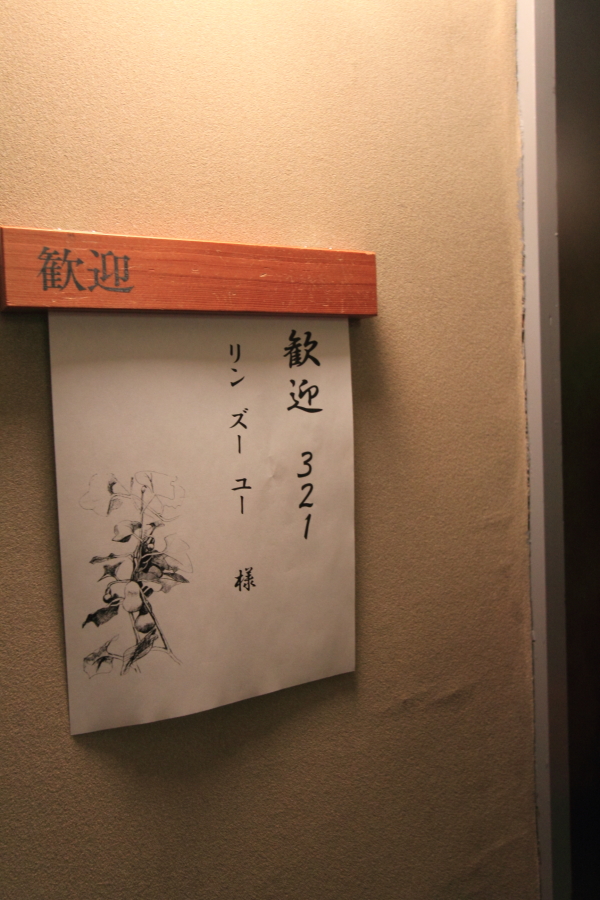 歓迎
歓迎 321
リン ズー ユー 様